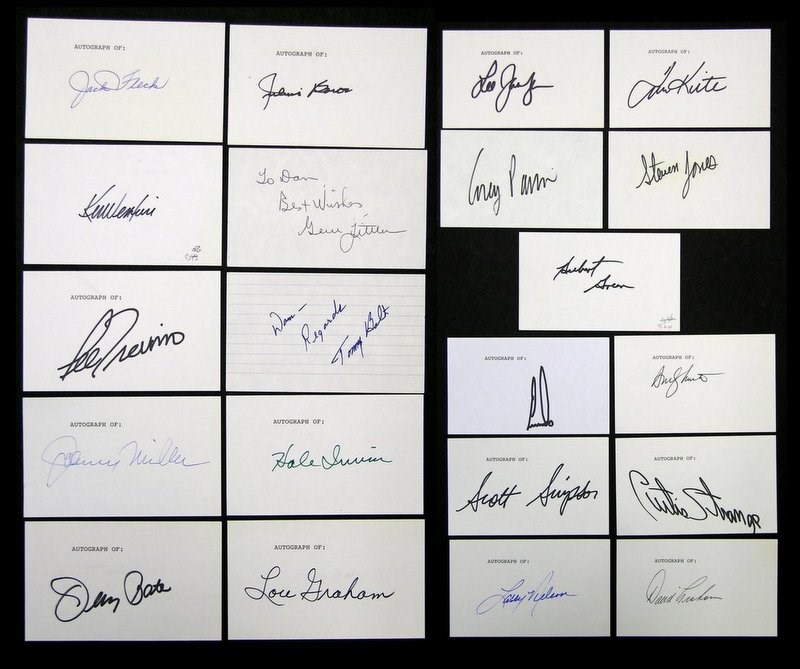 AUTOGRAPH OF:
Jack Fleck
AUTOGRAPH OF:
Julius Boros
Ken Venturi
To Dan
Best Wishes
Gene Littler
AUTOGRAPH OF:
Lee Trevino
Dan—
Regards
Tommy Bolt
AUTOGRAPH OF:
Johnny Miller
AUTOGRAPH OF:
Hale Irwin
AUTOGRAPH OF:
Jerry Pate
AUTOGRAPH OF:
Lou Graham
AUTOGRAPH OF:
Lee Janzen
AUTOGRAPH OF:
Tom Kite
Corey Pavin
Steven Jones
Hubert
Green
AUTOGRAPH OF:
AUTOGRAPH OF:
AUTOGRAPH OF:
Scott Simpson
AUTOGRAPH OF:
Curtis Strange
AUTOGRAPH OF:
Larry Nelson
AUTOGRAPH OF:
David Graham